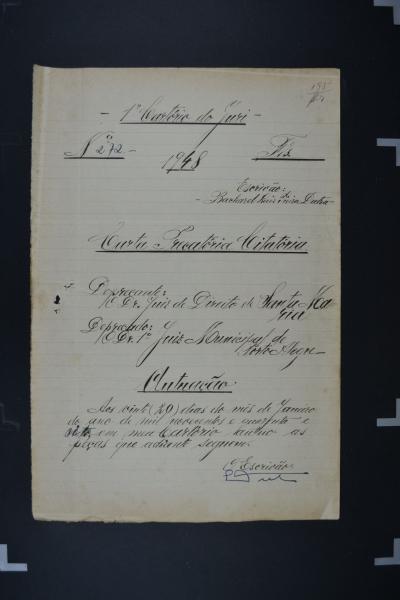 - 1º Cartório do Juri -
Nº 272 -
1948
Fls.
Escrivão:
- Bacharel Luis Dutra -
Carta Precatória Citatória
Deprecante:
O Dr. Juiz de Direito de Santa Ma-
ria
Deprecado:
O Dr. 1º Juiz Municipal de
Porto Alegre -
Autuação
Aos vinte (20) dias do mês de Janeiro
do ano de mil novecentos e quarenta e
oito, em meu Cartório autúo as
peças que adiante seguem.
O Escrivão